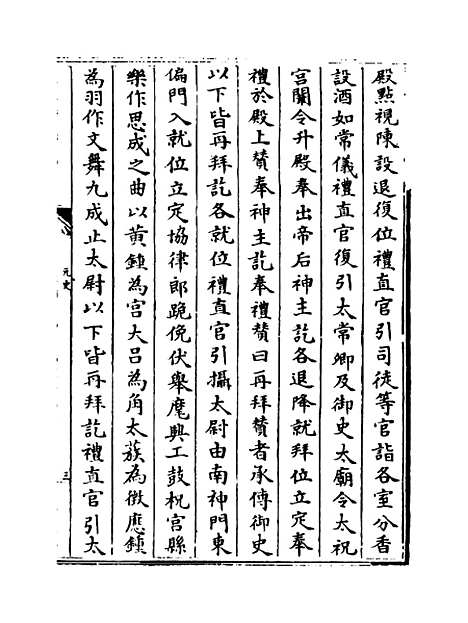 殿點視陳設退復位禮直官引司徒等官詣各室分香
設酒如常儀禮直官復引太常卿及御史太廟令太祝
宫闈令升殿奉出帝后神主訖各退降就拜位立定奉
禮於殿上贊奉神主訖奉禮贊曰再拜贊者承傳御史
以下皆再拜訖各就位禮直官引攝太尉由南神門東
偏門入就位立定協律郎跪俛伏舉麾興工鼓柷宫縣
樂作思成之曲以黄鍾為宫大吕為角太蔟為徴應鍾
為羽作文舞九成止太尉以下皆再拜訖禮直官引太
元史
三